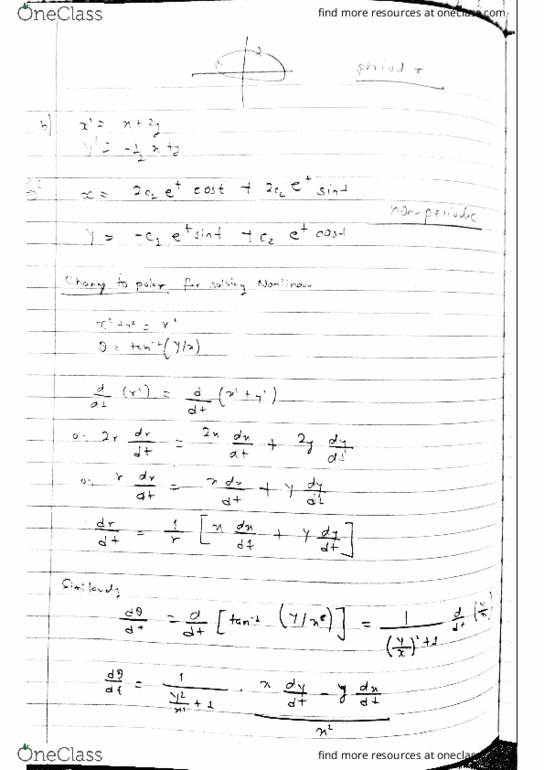 OneClass find more resources at oneclass.com
2
period π
b) x' = x + 2y
y' = -1/2 x + y
x = 2c₁ e^t cost + 2c₂ e^t sint
non-periodic
y = -c₁ e^t sint + c₂ e^t cost
Change to polar for solving Nonlinear
x² + y² = r²
θ = tan⁻¹(y/x)
d/dt (r²) = d/dt (x² + y²)
or 2r dr/dt = 2x dx/dt + 2y dy/dt
or r dr/dt = x dx/dt + y dy/dt
dr/dt = 1/r [x dx/dt + y dy/dt]
Similarly
dθ/dt = d/dt [tan⁻¹ (y/x)] = 1/((y/x)² + 1) d/dt (y/x)
dθ/dt = 1/(y²/x² + 1) · (x dy/dt - y dx/dt)/x²
OneClass find more resources at oneclass.com